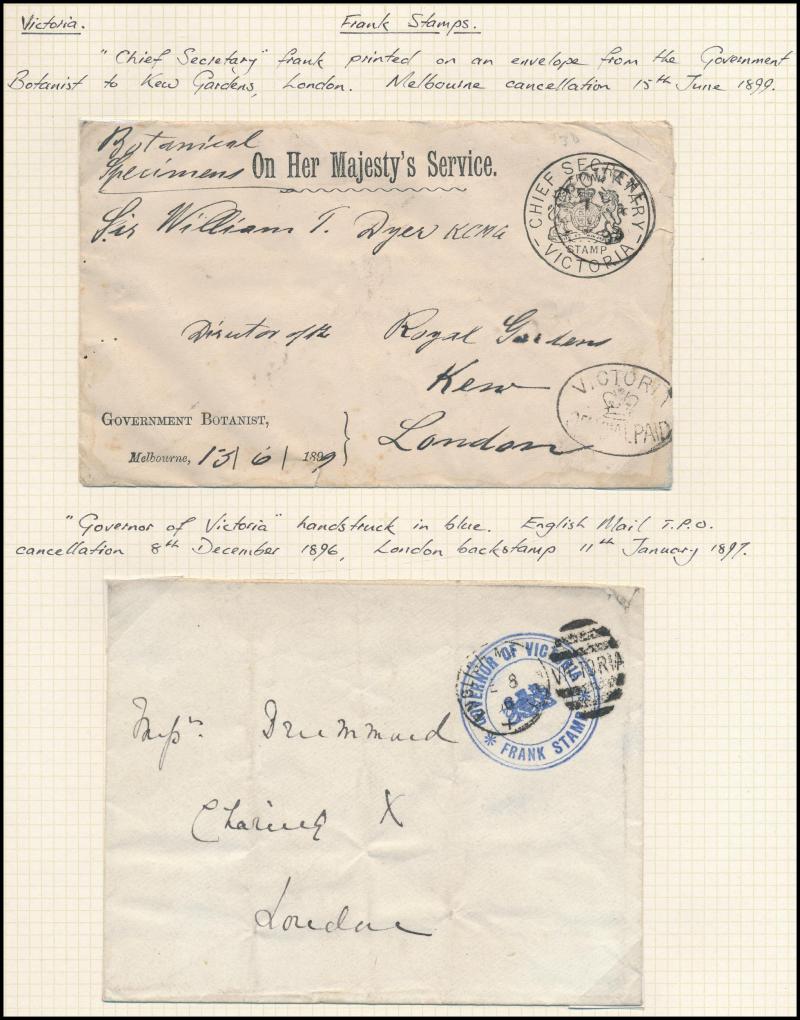 Victoria. Frank Stamps.
"Chief Secretary" frank printed on an envelope from the Government
Botanist to Kew Gardens, London. Melbourne cancellation 15th June 1899.
Botanical
Specimens
On Her Majesty's Service.
CHIEF SECRETARY
STAMP
- VICTORIA -
Sir William T. Dyer KCMG
Director of the Royal Gardens
Kew
London
VICTORIA
PAID
GOVERNMENT BOTANIST,
Melbourne, 13/6/1899
"Governor of Victoria" handstruck in blue. English Mail T.P.O.
cancellation 8th December 1896, London backstamp 11th January 1897.
GOVERNOR OF VICTORIA
* FRANK STAMP *
8
VICTORIA
Drummond
Charing X
London